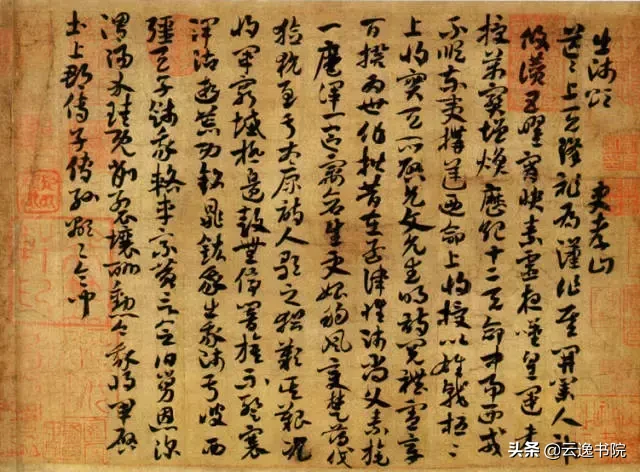 出師頌 史孝山
茫茫上天降祚為漢作基開業人神
攸讚五曜霄映素靈夜嘆皇運未
授萬寶增煥歷紀十二天命中易西戎
不順東夷構逆乃命上將授以雄戟桓〻
上將寔天所啟允文允武明詩閱禮憲章
百揆為世作楷昔在孟津惟師尚父素旄
一麾渾一區宇蒼生更始朔風變楚薄伐
獫狁至于太原詩人歌之猶歎其艱況
我將軍窮城極邊鼓無停響旗不蹔褰
澤沾遐荒功銘鼎鉉我出我師于彼西
疆天子餞我輅車乘黃言念伯舅恩深
渭陽介珪既削裂壤酬勳今我將軍啟
土上郡傳子傳孫顯〻令問
頭条 @云逸书院